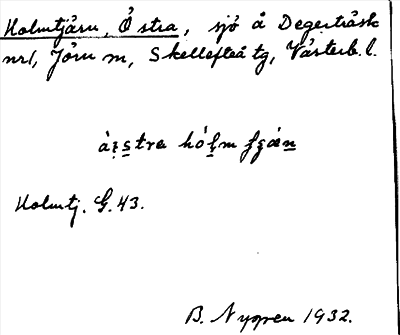 Holmtjärn, Östra, sjö å Degerträsk
nr1, Jörn sn, Skellefteå tg, Västerb. l.
hólm
Holmtj. G. 43.
B. Nygren 1932.